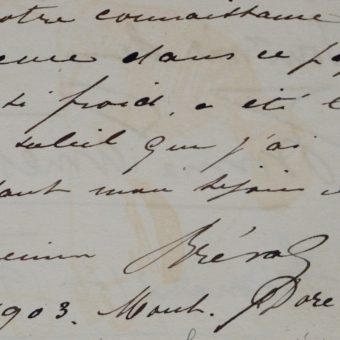 otre connaissance
dans ce pa
si froid, a été l
soleil que j'ai
dant mon séjour
Bréval
1903. Mont. Dore